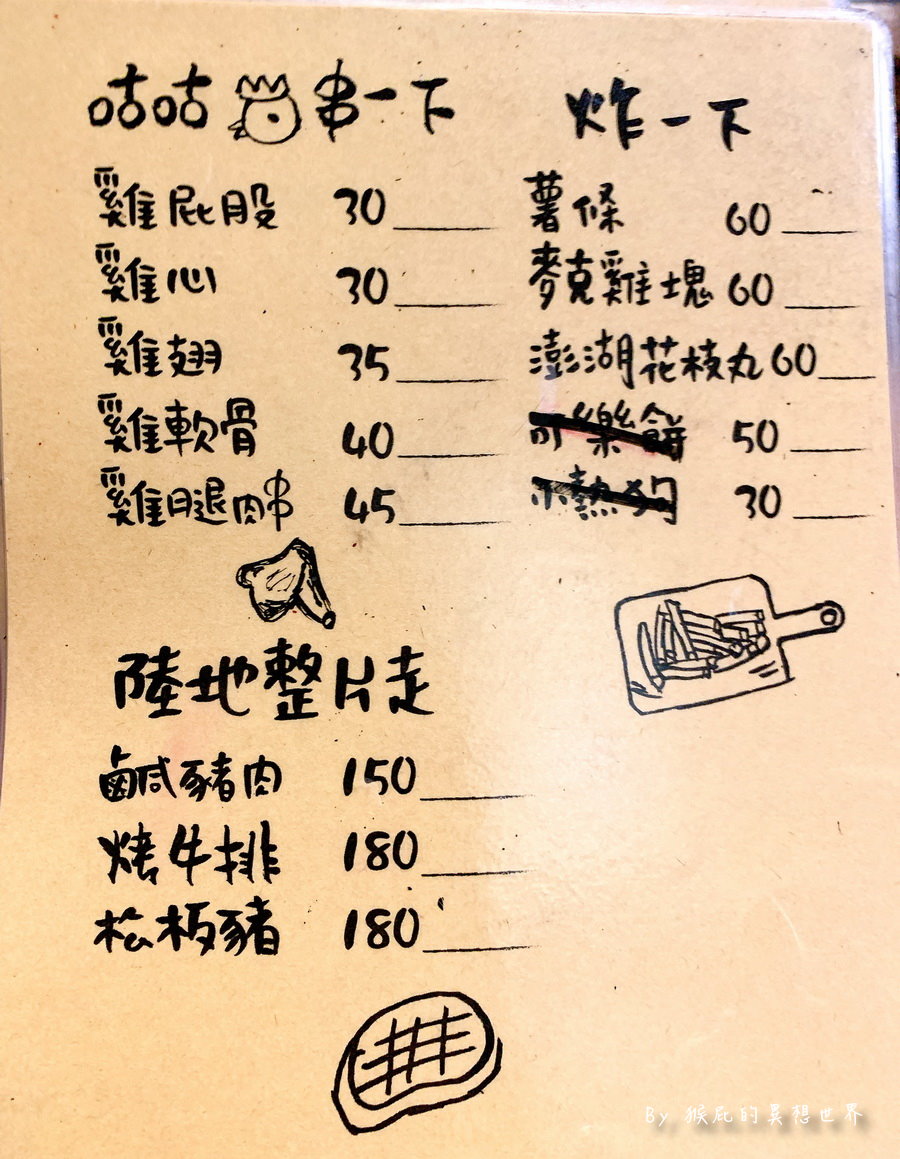 咕咕串一下
雞屁股 30
雞心 30
雞翅 35
雞軟骨 40
雞腿肉串 45
炸一下
薯條 60
麥克雞塊 60
澎湖花枝丸 60
可樂餅 50
熱狗 30
陸地整片走
鹹豬肉 150
烤牛排 180
松板豬 180
By 猴屁的異想世界